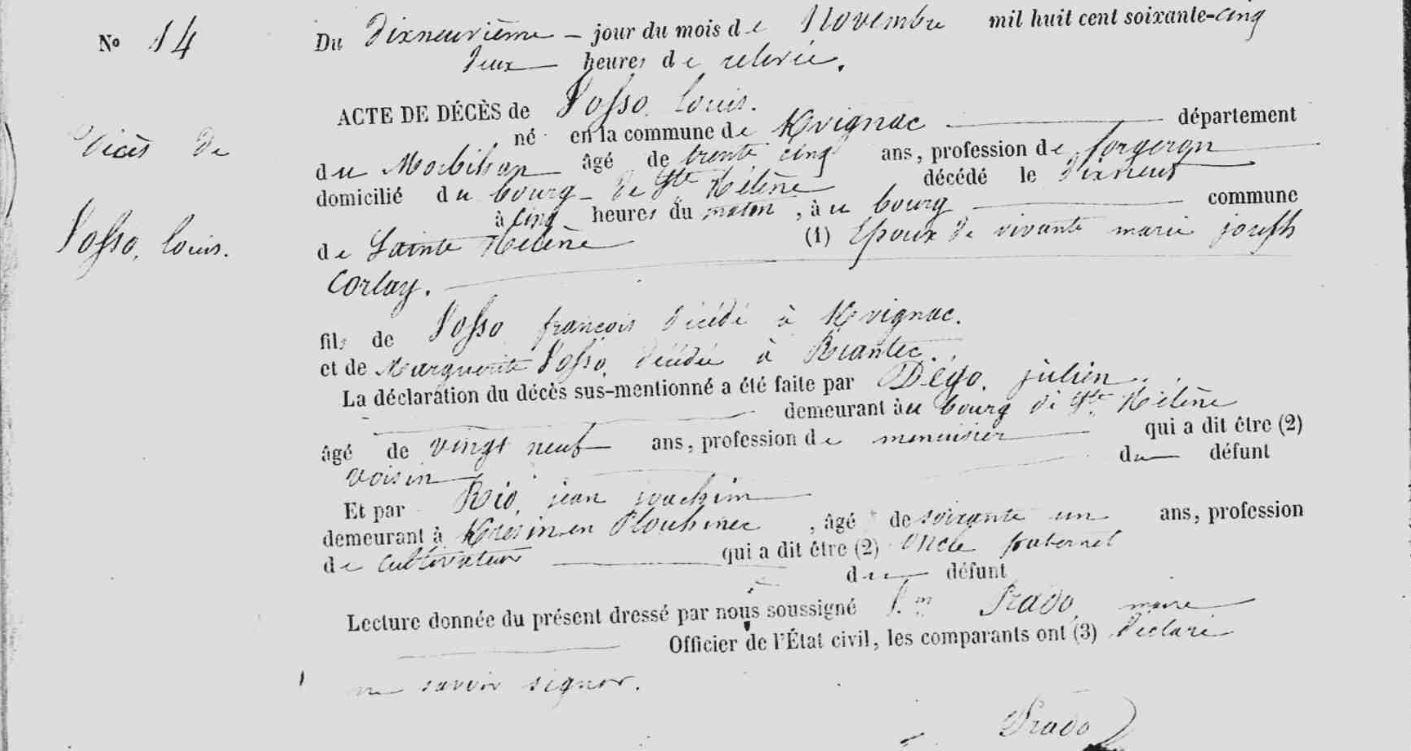 N° 14
Du dixneuvième jour du mois de Novembre mil huit cent soixante-cinq
deux heures de relevée.
ACTE DE DÉCÈS de Josso, louis.
né en la commune de Kvignac département
du Morbihan âgé de trente cinq ans, profession de forgeron
domicilié du bourg de Ste Hélène décédé le dixneuf
à cinq heures du matin, à u bourg commune
de Sainte Hélène (1) Epoux de vivante marie joseph
Corlay.
Décès de
Josso, louis.
fils de Josso françois décédé à Kvignac.
et de Marguerite Josso, décédée à Riantec.
La déclaration du décès sus-mentionné a été faite par Dégo, julien
demeurant au bourg de Ste Hélène
âgé de vingt neuf ans, profession de menuisier qui a dit être (2)
voisin du défunt
Et par Rio, jean joachim
demeurant à en Plouhinec, âgé de soixante un ans, profession
de cultivateur qui a dit être (2) oncle du défunt
Lecture donnée du présent dressé par nous soussigné Prado, maire
Officier de l'État civil, les comparants ont (3) déclaré
ne savoir signer.
Prado